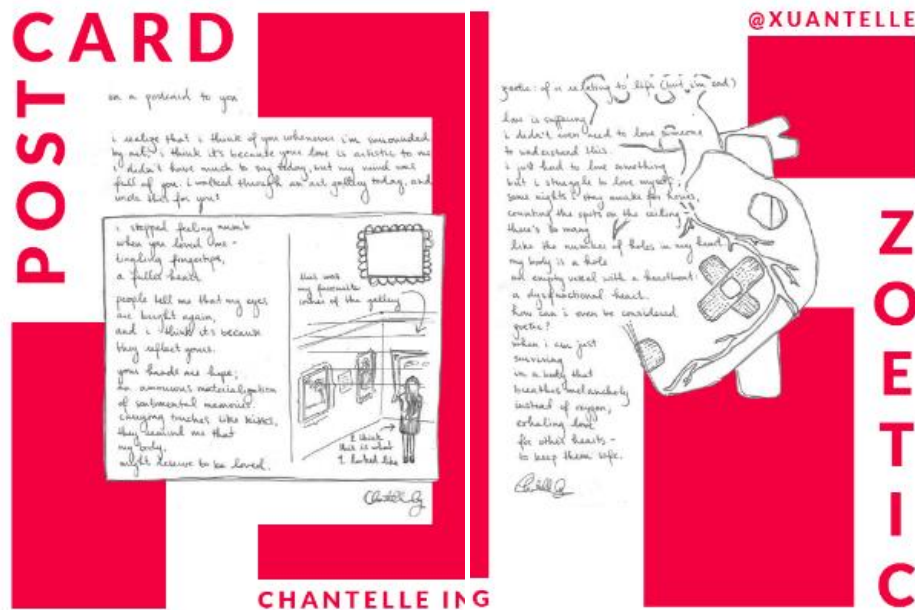 POSTCARD
on a postcard to you
i realize that i think of you whenever i'm surrounded
by art. i think it's because your love is artistic to me
i didn't have much to say today, but my mind was
full of you. i walked through an art gallery today, and
wrote this for you!
i stopped feeling numb
when you loved me -
tingling fingertips,
a fuller heart.
people tell me that my eyes
are bright again,
and i think it's because
they reflect yours.
your hands are hope;
an amorous materialization
of sentimental memories.
carrying touches like kisses,
they remind me that
my body,
might deserve to be loved.
this was
my favourite
corner of the gallery
I think
this is what
I looked like
Chantelle Ing
CHANTELLE ING
@XUANTELLE
zoetic: of or relating to life (but i'm dead)
love is suffering
i didn't even need to love someone
to understand this.
i just had to love something
but i struggle to love myself
some nights i stay awake for hours,
counting the spots on the ceiling -
there's so many
like the number of holes in my heart.
my body is a hole
an empty vessel with a heartbeat:
a dysfunctional heart.
how can i even be considered
zoetic?
when i am just
surviving
in a body that
breathes melancholy
instead of oxygen,
exhaling love
for other hearts -
to keep them safe.
Chantelle Ing
ZOETIC